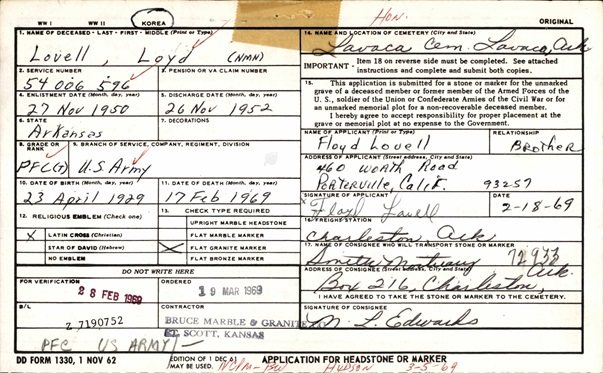 WW I WW II KOREA Hon. ORIGINAL
1. NAME OF DECEASED - LAST - FIRST - MIDDLE (Print or Type)
Lovell, Loyd (NMN)
2. SERVICE NUMBER
54 006 596
3. PENSION OR VA CLAIM NUMBER
4. ENLISTMENT DATE (Month, day, year)
27 Nov 1950
5. DISCHARGE DATE (Month, day, year)
26 Nov 1952
6. STATE
Arkansas
7. DECORATIONS
8. GRADE OR RANK
PFC(T)
9. BRANCH OF SERVICE, COMPANY, REGIMENT, DIVISION
U.S Army
10. DATE OF BIRTH (Month, day, year)
23 April 1929
11. DATE OF DEATH (Month, day, year)
17 Feb 1969
12. RELIGIOUS EMBLEM (Check one)
X LATIN CROSS (Christian)
STAR OF DAVID (Hebrew)
NO EMBLEM
13. CHECK TYPE REQUIRED
UPRIGHT MARBLE HEADSTONE
FLAT MARBLE MARKER
X FLAT GRANITE MARKER
FLAT BRONZE MARKER
DO NOT WRITE HERE
FOR VERIFICATION
28 FEB 1969
ORDERED
19 MAR 1969
B/L
Z 7190752
CONTRACTOR
BRUCE MARBLE & GRANITE
FT. SCOTT, KANSAS
PFC US ARMY
14. NAME AND LOCATION OF CEMETERY (City and State)
Lavaca Cem. Lavaca, Ark
IMPORTANT - Item 18 on reverse side must be completed. See attached
instructions and complete and submit both copies.
15. This application is submitted for a stone or marker for the unmarked
grave of a deceased member or former member of the Armed Forces of the
U. S., soldier of the Union or Confederate Armies of the Civil War or for
an unmarked memorial plot for a non-recoverable deceased member.
I hereby agree to accept responsibility for proper placement at the
grave or memorial plot at no expense to the Government.
NAME OF APPLICANT (Print or Type)
Floyd Lovell
RELATIONSHIP
Brother
ADDRESS OF APPLICANT (Street address, City and State)
460 Worth Road
Porterville, Calif. 93257
SIGNATURE OF APPLICANT
Floyd Lovell
DATE
2-18-69
16. FREIGHT STATION
Charleston Ark
17. NAME OF CONSIGNEE WHO WILL TRANSPORT STONE OR MARKER
72933
ADDRESS OF CONSIGNEE (Street address, City and State)
Box 216, Charleston, Ark.
I HAVE AGREED TO TAKE THE STONE OR MARKER TO THE CEMETERY.
SIGNATURE OF CONSIGNEE
Edwards
DD FORM 1330, 1 NOV 62
EDITION OF 1 DEC 61 MAY BE USED.
APPLICATION FOR HEADSTONE OR MARKER
Hudson 3-5-69